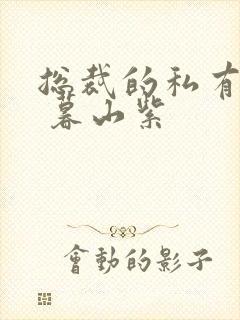 总裁的私有
暮山紫
會動的影子